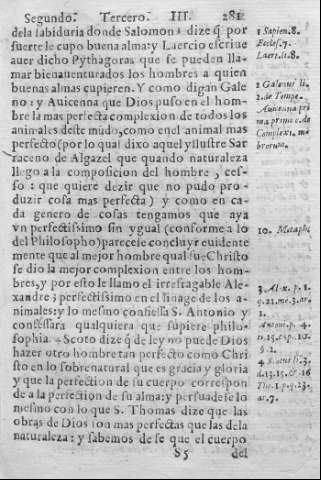 Segundo. Tercero. III. 281
dela sabiduria donde Salomon 1 dize q̃ por
suerte le cupo buena alma: y Laercio escriue
auer dicho Pythagoras que se pueden lla-
mar bienauenturados los hombres a quien
buenas almas cupieren. Y como digan Gale
no 2 y Auicenna que Dios puso en el hom-
bre la mas perfecta complexion de todos los
animales deste mũdo, como en el animal mas
perfecto (por lo qual dixo aquel yllustre Sar
raceno de Algazel que quando naturaleza
llego a la composicion del hombre, ces-
so: que quiere dezir que no pudo pro-
duzir cosa mas perfecta) y como en ca-
da genero de cosas tengamos que aya
vn perfectissimo sin ygual (conforme a lo
del Philosopho) pareceле concluyr euidente
mente que al mejor hombre qual fue Christo
se dio la mejor complexion entre los hom-
bres, y por esto le llamo el irrefragable Ale-
xandre 3 perfectissimo en el linage de los a-
nimales: y lo mesmo confiessa S. Antonio y
confessara qualquiera que supiere philo-
sophia. 4 Scoto dize q̃ de ley no puede Dios
hazer otro hombre tan perfecto como Chri
sto en lo sobrenatural que es gracia y gloria
y que la perfection de su cuerpo correspon
de a la perfection de su alma: y persuadese lo
mesmo con lo que S. Thomas dize que las
obras de Dios son mas perfectas que las dela
naturaleza: y sabemos de fe que el cuerpo
S5 del
1 Sapien. 8.
Eccles. 7.
Laert. li. 8.
2 Galenus li.
2. de Tempe.
Auicenna pri
ma primi c. de
Complexi. mẽ
brorum.
10. Metaph.
3. Al. x. p. 1.
q. 21. me. 3. ar.
1.
Antoni. p. 4.
ti. 15. cap. 10.
§. 2.
4 Scotus li. 3.
d. 13. 15. & 16
Tho. 1. p. q. 23.
ar. 7.